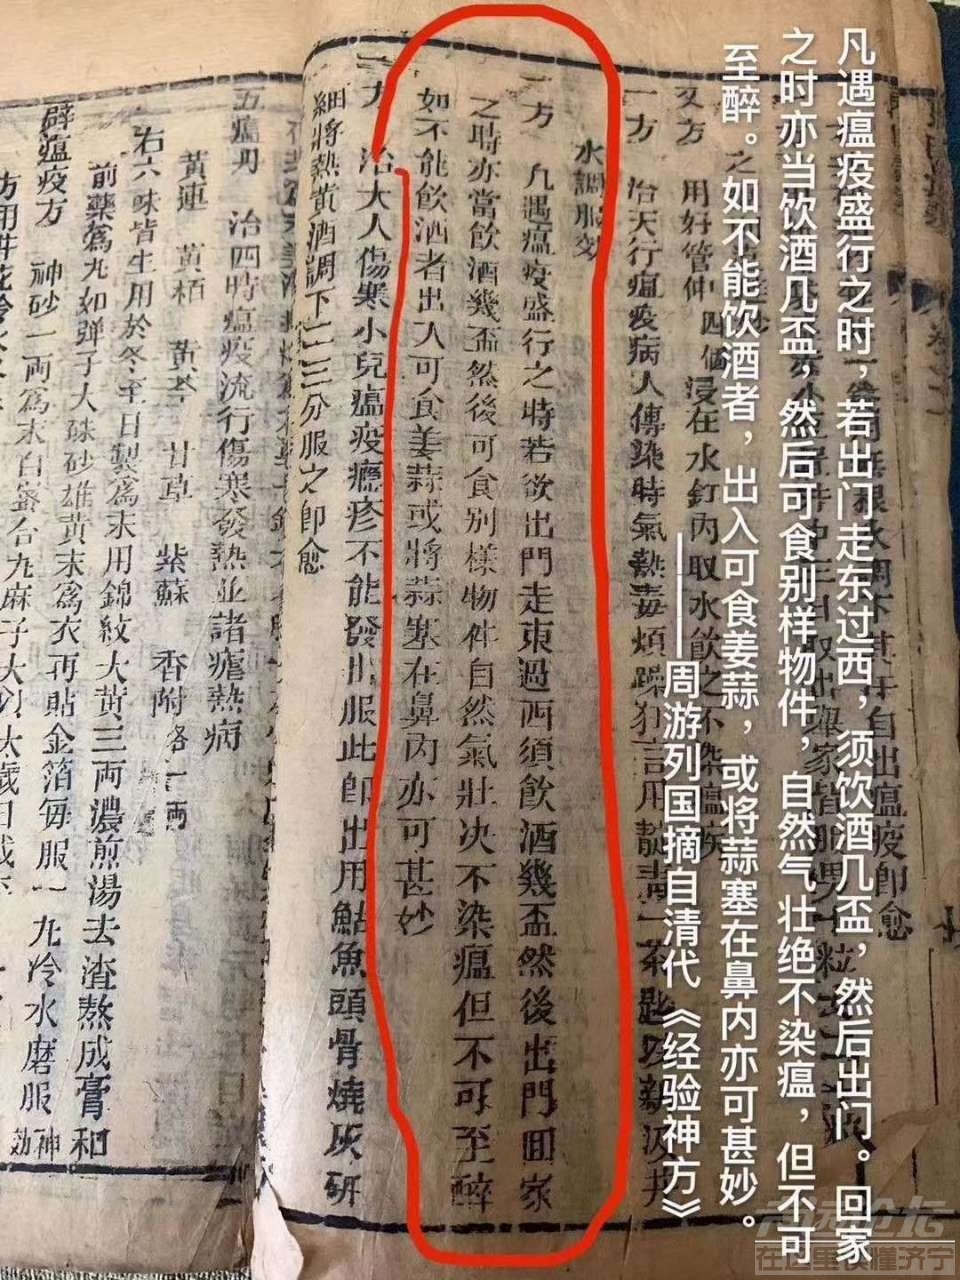 凡遇瘟疫盛行之时，若出门走东过西，须饮酒几盃，然后出门。回家
之时亦当饮酒几盃，然后可食别样物件，自然气壮绝不染瘟，但不可
至醉。如不能饮酒者，出入可食姜蒜，或将蒜塞在鼻内亦可甚妙。
——周游列国摘自清代《经验神方》
又方 用好管仲四個浸在水缸內取水飲之不染瘟疾
一方 治天行瘟疫病人傳染時氣熱毒煩躁狂言用靛青一茶匙以新汲井
水調服效
一方 凡遇瘟疫盛行之時若欲出門走東過西須飲酒幾盃然後出門囬家
之時亦當飲酒幾盃然後可食別樣物件自然氣壯决不染瘟但不可至醉
如不能飲酒者出入可食姜蒜或將蒜塞在鼻內亦可甚妙
一方 治大人傷寒小兒瘟疫癮疹不能發出服此即出用鮎魚頭骨燒灰研
細將熱黃酒調下二三分服之即愈
五瘟丹 治四時瘟疫流行傷寒發熱並諸瘧熱病
黃連 黃栢 黃芩 甘草 紫蘇 香附各一両
右六味皆生用於冬至日製為末用錦紋大黃三両濃煎湯去渣熬成膏和
前藥為丸如弹子大硃砂雄黃末為衣再貼金箔每服一丸冷水磨服神效
辟瘟疫方 神砂一両為末白蜜合丸麻子大以太歲日或
方用井花冷水
在这里读懂济宁